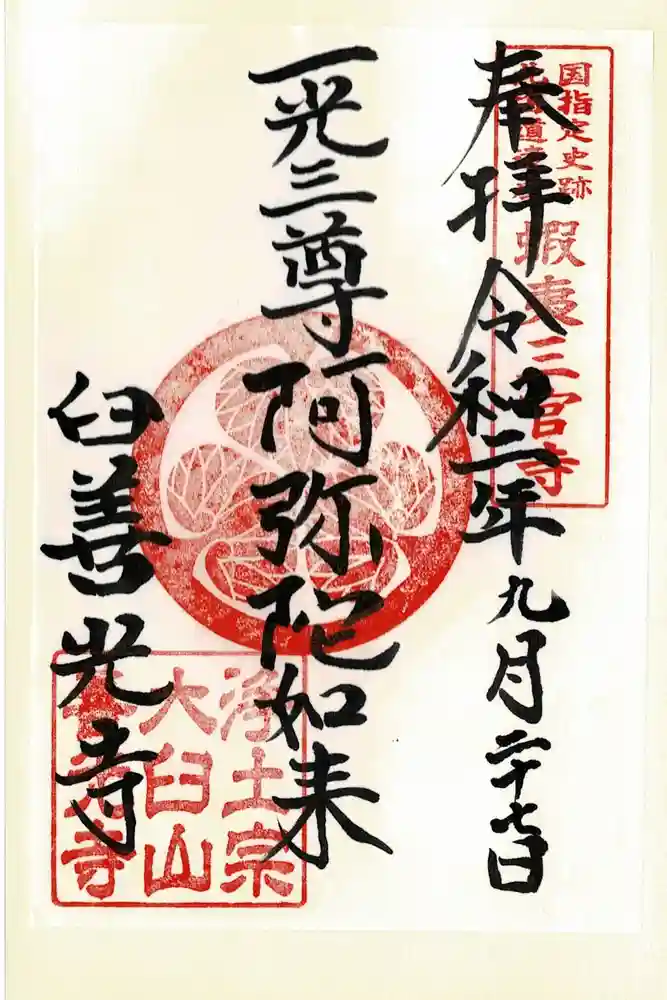 奉拝 令和二年九月二十七日
国指定史跡
北海道遺産
蝦夷三官寺
一光三尊阿弥陀如来
臼善光寺
浄土宗
大臼山
善光寺